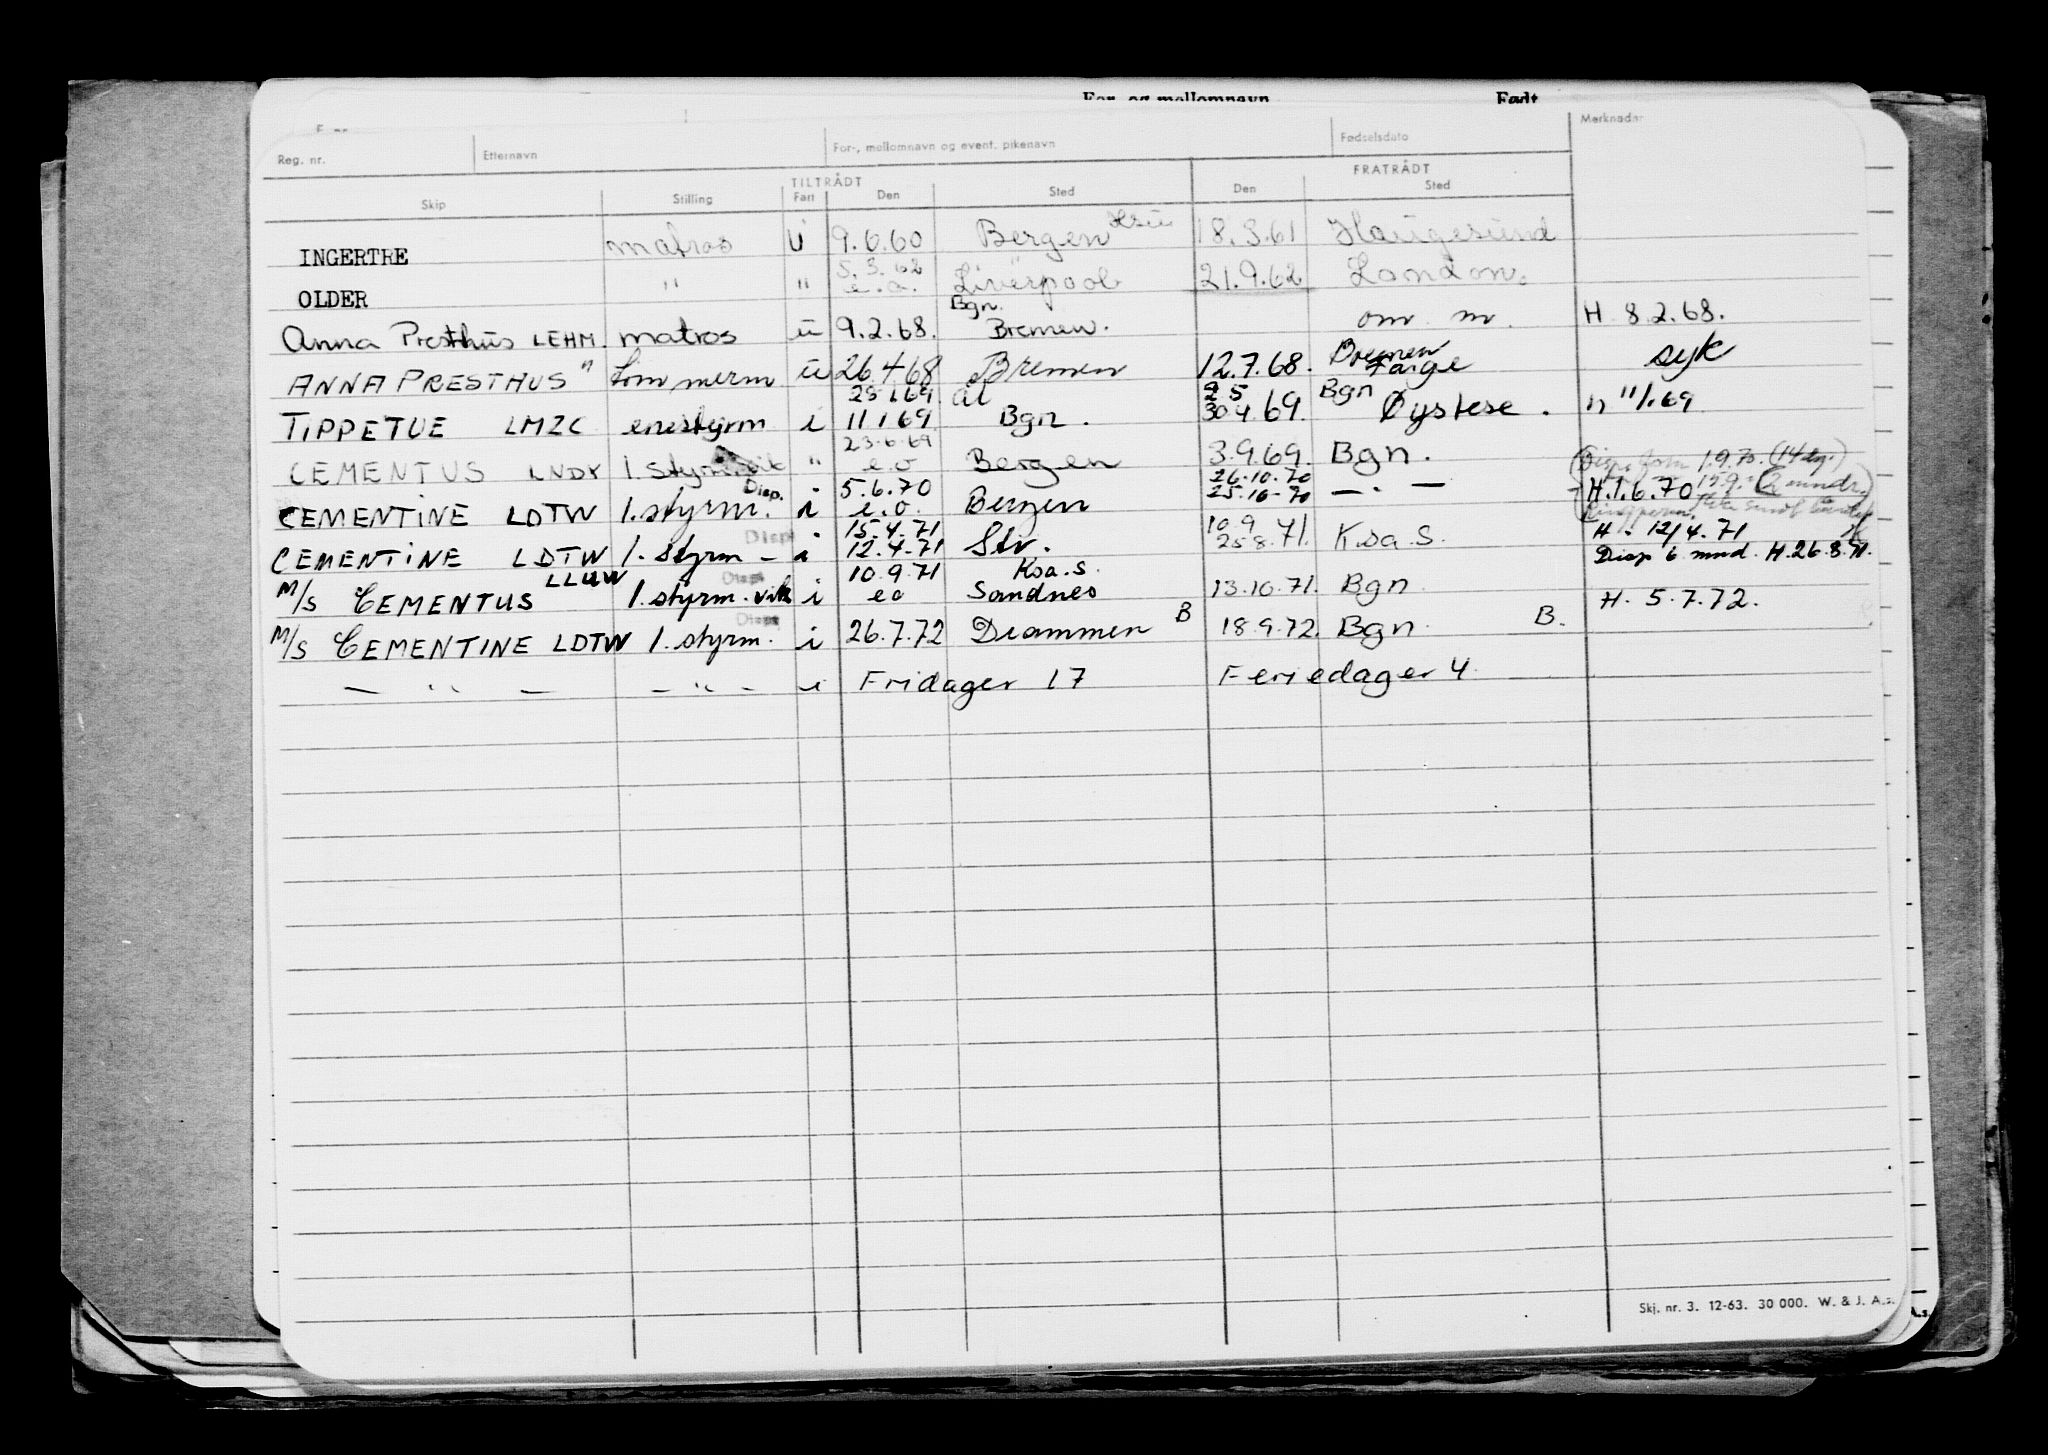 For- og mellomnavn Født
Reg. nr. Etternavn For-, mellomnavn og event. pikenavn Fødselsdato Merknader
TILTRÅDT FRATRÅDT
Skip Stilling Fart Den Sted Den Sted
INGERTRE matros u 9.6.60 Bergen 18.3.61 Haugesund
5.3.62
OLDER " " e.o. Liverpool 21.9.62 London.
Bgn.
Anna Presthus LEHM. matros u 9.2.68. Bremen. om m. H 8.2.68.
Bremen
ANNA PRESTHUS " tømmerm u 26 4 68 Bremen 12.7.68. Farge syk
25 1 69. ål 2 5 Bgn
TIPPETUE LMZC enestyrm i 11 1 69 Bgn. 30 4 69. Øystese. H 11/1.69
23.6.69
CEMENTUS LNDX 1. styrm. vik " e.o Bergen 3.9.69. Bgn.
Disp. 1.9.70. (14 dg.)
Disp. 5.6.70 26.10.70
CEMENTINE LDTW 1. styrm. i e.o. Bergen 25.10-70 — " — H.1.6.70
Disp 15.4.71 10.9 H. 12/4.71
CEMENTINE LDTW 1. styrm – i 12.4.71 Stv. 25 8.71. Ksa. S. Disp 6 mnd. H.26.8.71.
LLUW Disp 10.9.71 Ksa. S.
M/S CEMENTUS 1. styrm. vik i eo Sandnes 13.10.71. Bgn. H. 5.7.72.
Disp
M/S CEMENTINE LDTW 1. styrm. i 26.7.72 Drammen B 18.9.72. Bgn. B.
— " — — " — i Fridager 17 Feriedager 4.
Skj. nr. 3. 12-63. 30 000. W. & J. A.s.